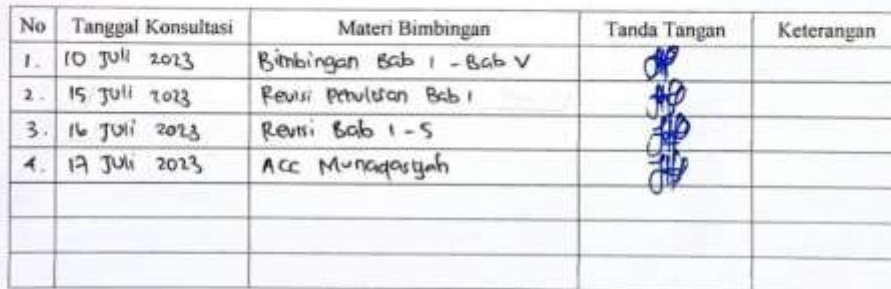 No Tanggal Konsultasi Materi Bimbingan Tanda Tangan Keterangan
1. 10 Juli 2023 Bimbingan Bab 1 - Bab V
2. 15 Juli 2023 Revisi Penulisan Bab 1
3. 16 Juli 2023 Revisi Bab 1 - 5
4. 17 Juli 2023 ACC Munaqasyah